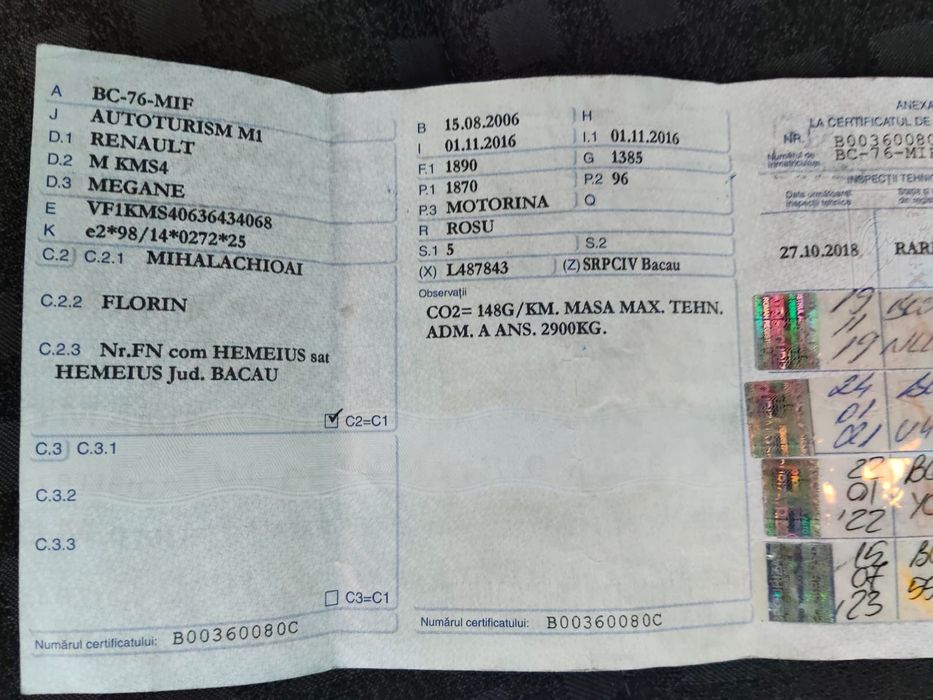 A BC-76-MIF
J AUTOTURISM M1
D.1 RENAULT
D.2 M KMS4
D.3 MEGANE
E VF1KMS40636434068
K e2*98/14*0272*25
C.2 C.2.1 MIHALACHIOAI
C.2.2 FLORIN
C.2.3 Nr.FN com HEMEIUS sat
HEMEIUS Jud. BACAU
C2=C1
C.3 C.3.1
C.3.2
C.3.3
C3=C1
Numărul certificatului: B00360080C
B 15.08.2006 H
I 01.11.2016 I.1 01.11.2016
F.1 1890 G 1385
P.1 1870 P.2 96
P.3 MOTORINA Q
R ROSU
S.1 5 S.2
(X) L487843 (Z) SRPCIV Bacau
Observații
CO2= 148G/KM. MASA MAX. TEHN.
ADM. A ANS. 2900KG.
Numărul certificatului: B00360080C
ANEXA
LA CERTIFICATUL DE
NR. B00360080
Numărul de
înmatriculare BC-76-MIF
INSPECȚII TEHNIC
Data următoarei
inspecții tehnice
27.10.2018 RAR
19
11
19
24
01
021
22
01
'22
15
07
'23